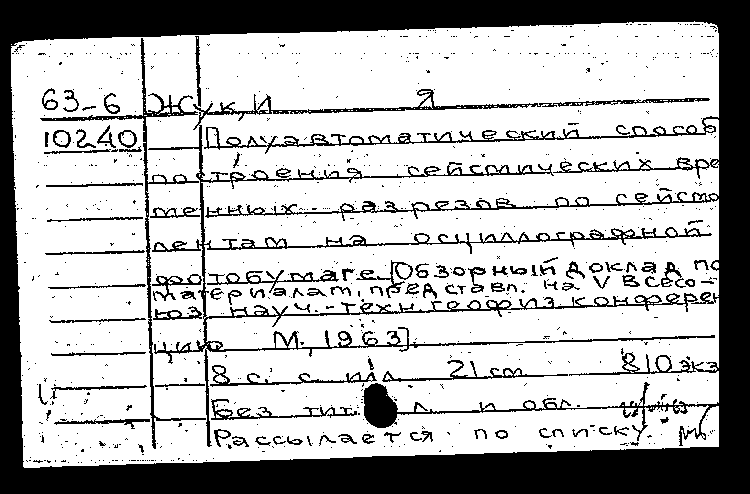 63-6 Жук, И Я
10240 Полуавтоматический способ
построения сейсмических вре
менных разрезов по сейсмо
лентам на осциллографной
фотобумаге. [Обзорный доклад по
материалам, представл. на V Всесо-
юз. науч.-техн. геофиз. конферен
цию М., 1963].
8 с. с илл. 21 см 810 экз
Без тит. л. и обл.
Рассылается по списку.